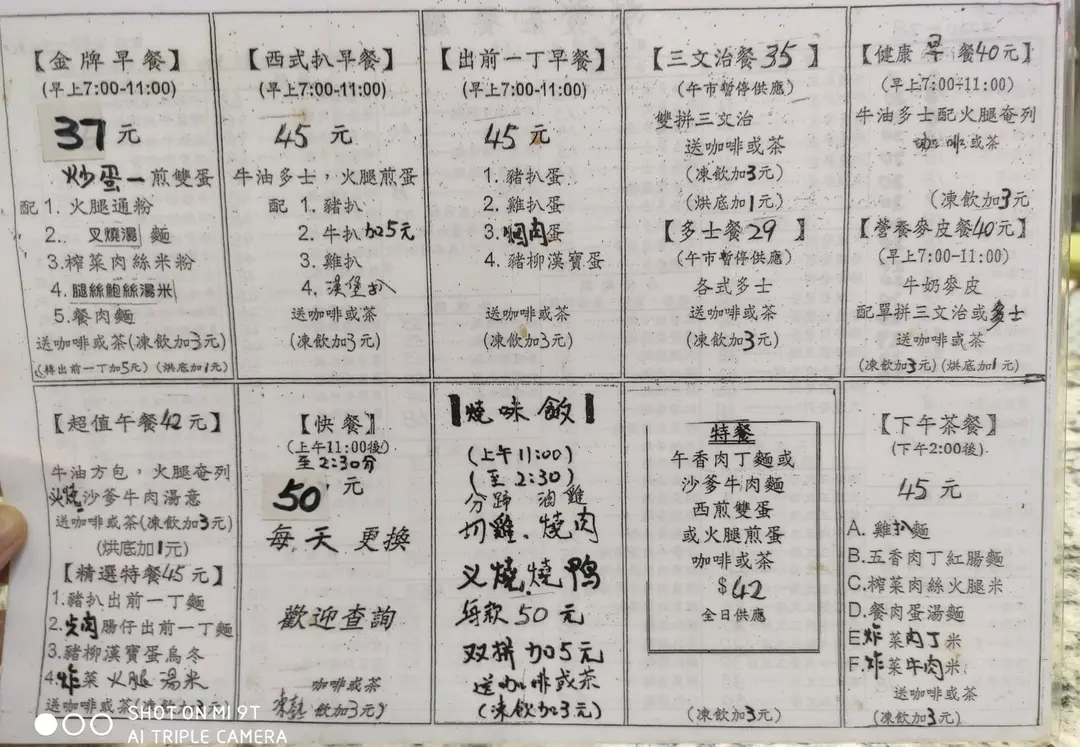 【金牌早餐】
(早上7:00-11:00)
37元
炒蛋一煎雙蛋
配 1. 火腿通粉
2. 叉燒湯 麵
3.榨菜肉絲米粉
4. 腿絲鮑絲湯米
5.餐肉麵
送咖啡或茶(凍飲加3元)
出前一丁加5元) (烘底加1元)
【西式扒早餐】
(早上7:00-11:00)
45 元
牛油多士，火腿煎蛋
配 1. 豬扒
2. 牛扒 加5元
3. 雞扒
4. 漢堡扒
送咖啡或茶
(凍飲加3元)
【出前一丁早餐】
(早上7:00-11:00)
45 元
1. 豬扒蛋
2. 雞扒蛋
3. 肉蛋
4. 豬柳漢寶蛋
送咖啡或茶
(凍飲加3元)
【三文治餐 35】
(午市暫停供應)
雙拼三文治
送咖啡或茶
(凍飲加3元)
(烘底加1元)
【多士餐 29 】
(午市暫停供應)
各式多士
送咖啡或茶
(凍飲加3元)
【健康 早 餐40元】
(早上7:00-11:00)
牛油多士配火腿奄列
咖啡或茶
(凍飲加3元
【營養麥皮餐40元】
(早上7:00-11:00)
牛奶麥皮
配單拼三文治或多士
送咖啡或茶
(凍飲加3元) (烘底加1元)
【超值午餐42元】
牛油方包，火腿奄列
沙爹牛肉湯意
送咖啡或茶(凍飲加3元)
(烘底加1元)
【精選特餐45元】
1.豬扒出前一丁麵
2. 肉腸仔出前一丁麵
3.豬柳漢寶蛋烏冬
4.炸菜 火腿 湯米
送咖啡或茶
【快餐】
(上午11:00後)
至2:30分
50 元
每天 更換
歡迎查詢
咖啡或茶
飲加3元)
【燒味飯】
(上午11:00)
(至 2:30)
分蹄 油雞
切雞. 燒肉
叉燒. 燒鴨
每款 50 元
双拼 加5元
送咖啡或茶
(凍飲加3元)
特餐
午香肉丁麵或
沙爹牛肉麵
西煎雙蛋
或火腿煎蛋
咖啡或茶
$42
全日供應
(凍飲加3元)
【下午茶餐】
(下午2:00後)
45 元
A. 雞扒麵
B.五香肉丁紅腸麵
C.榨菜肉絲火腿米
D.餐肉蛋湯麵
E.炸菜肉丁米
F.炸菜牛肉米
送咖啡或茶
(凍飲加3元)
SHOT ON MI 9T
AI TRIPLE CAMERA